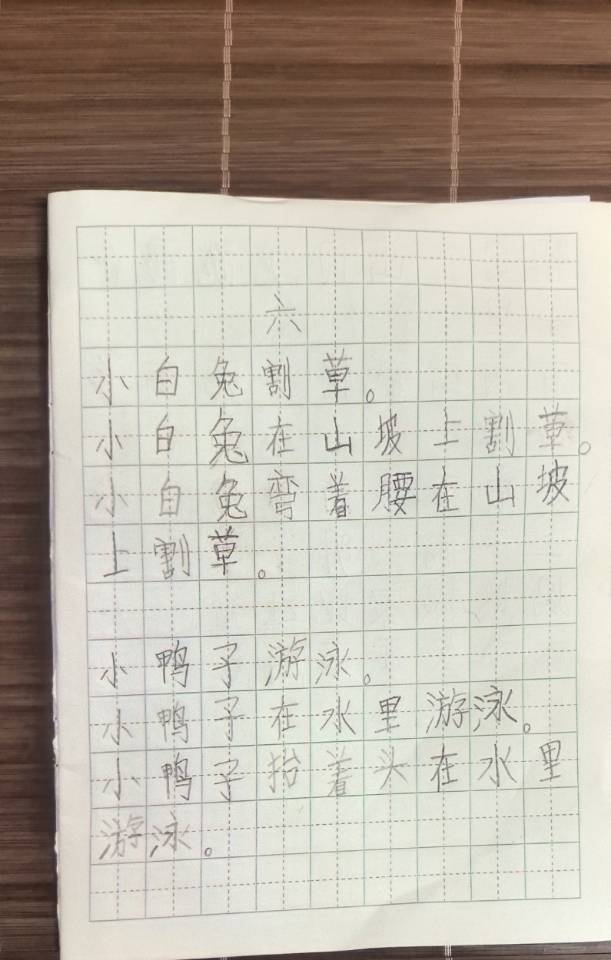 六
小白兔割草。
小白兔在山坡上割草。
小白兔弯着腰在山坡
上割草。
小鸭子游泳。
小鸭子在水里游泳。
小鸭子抬着头在水里
游泳。